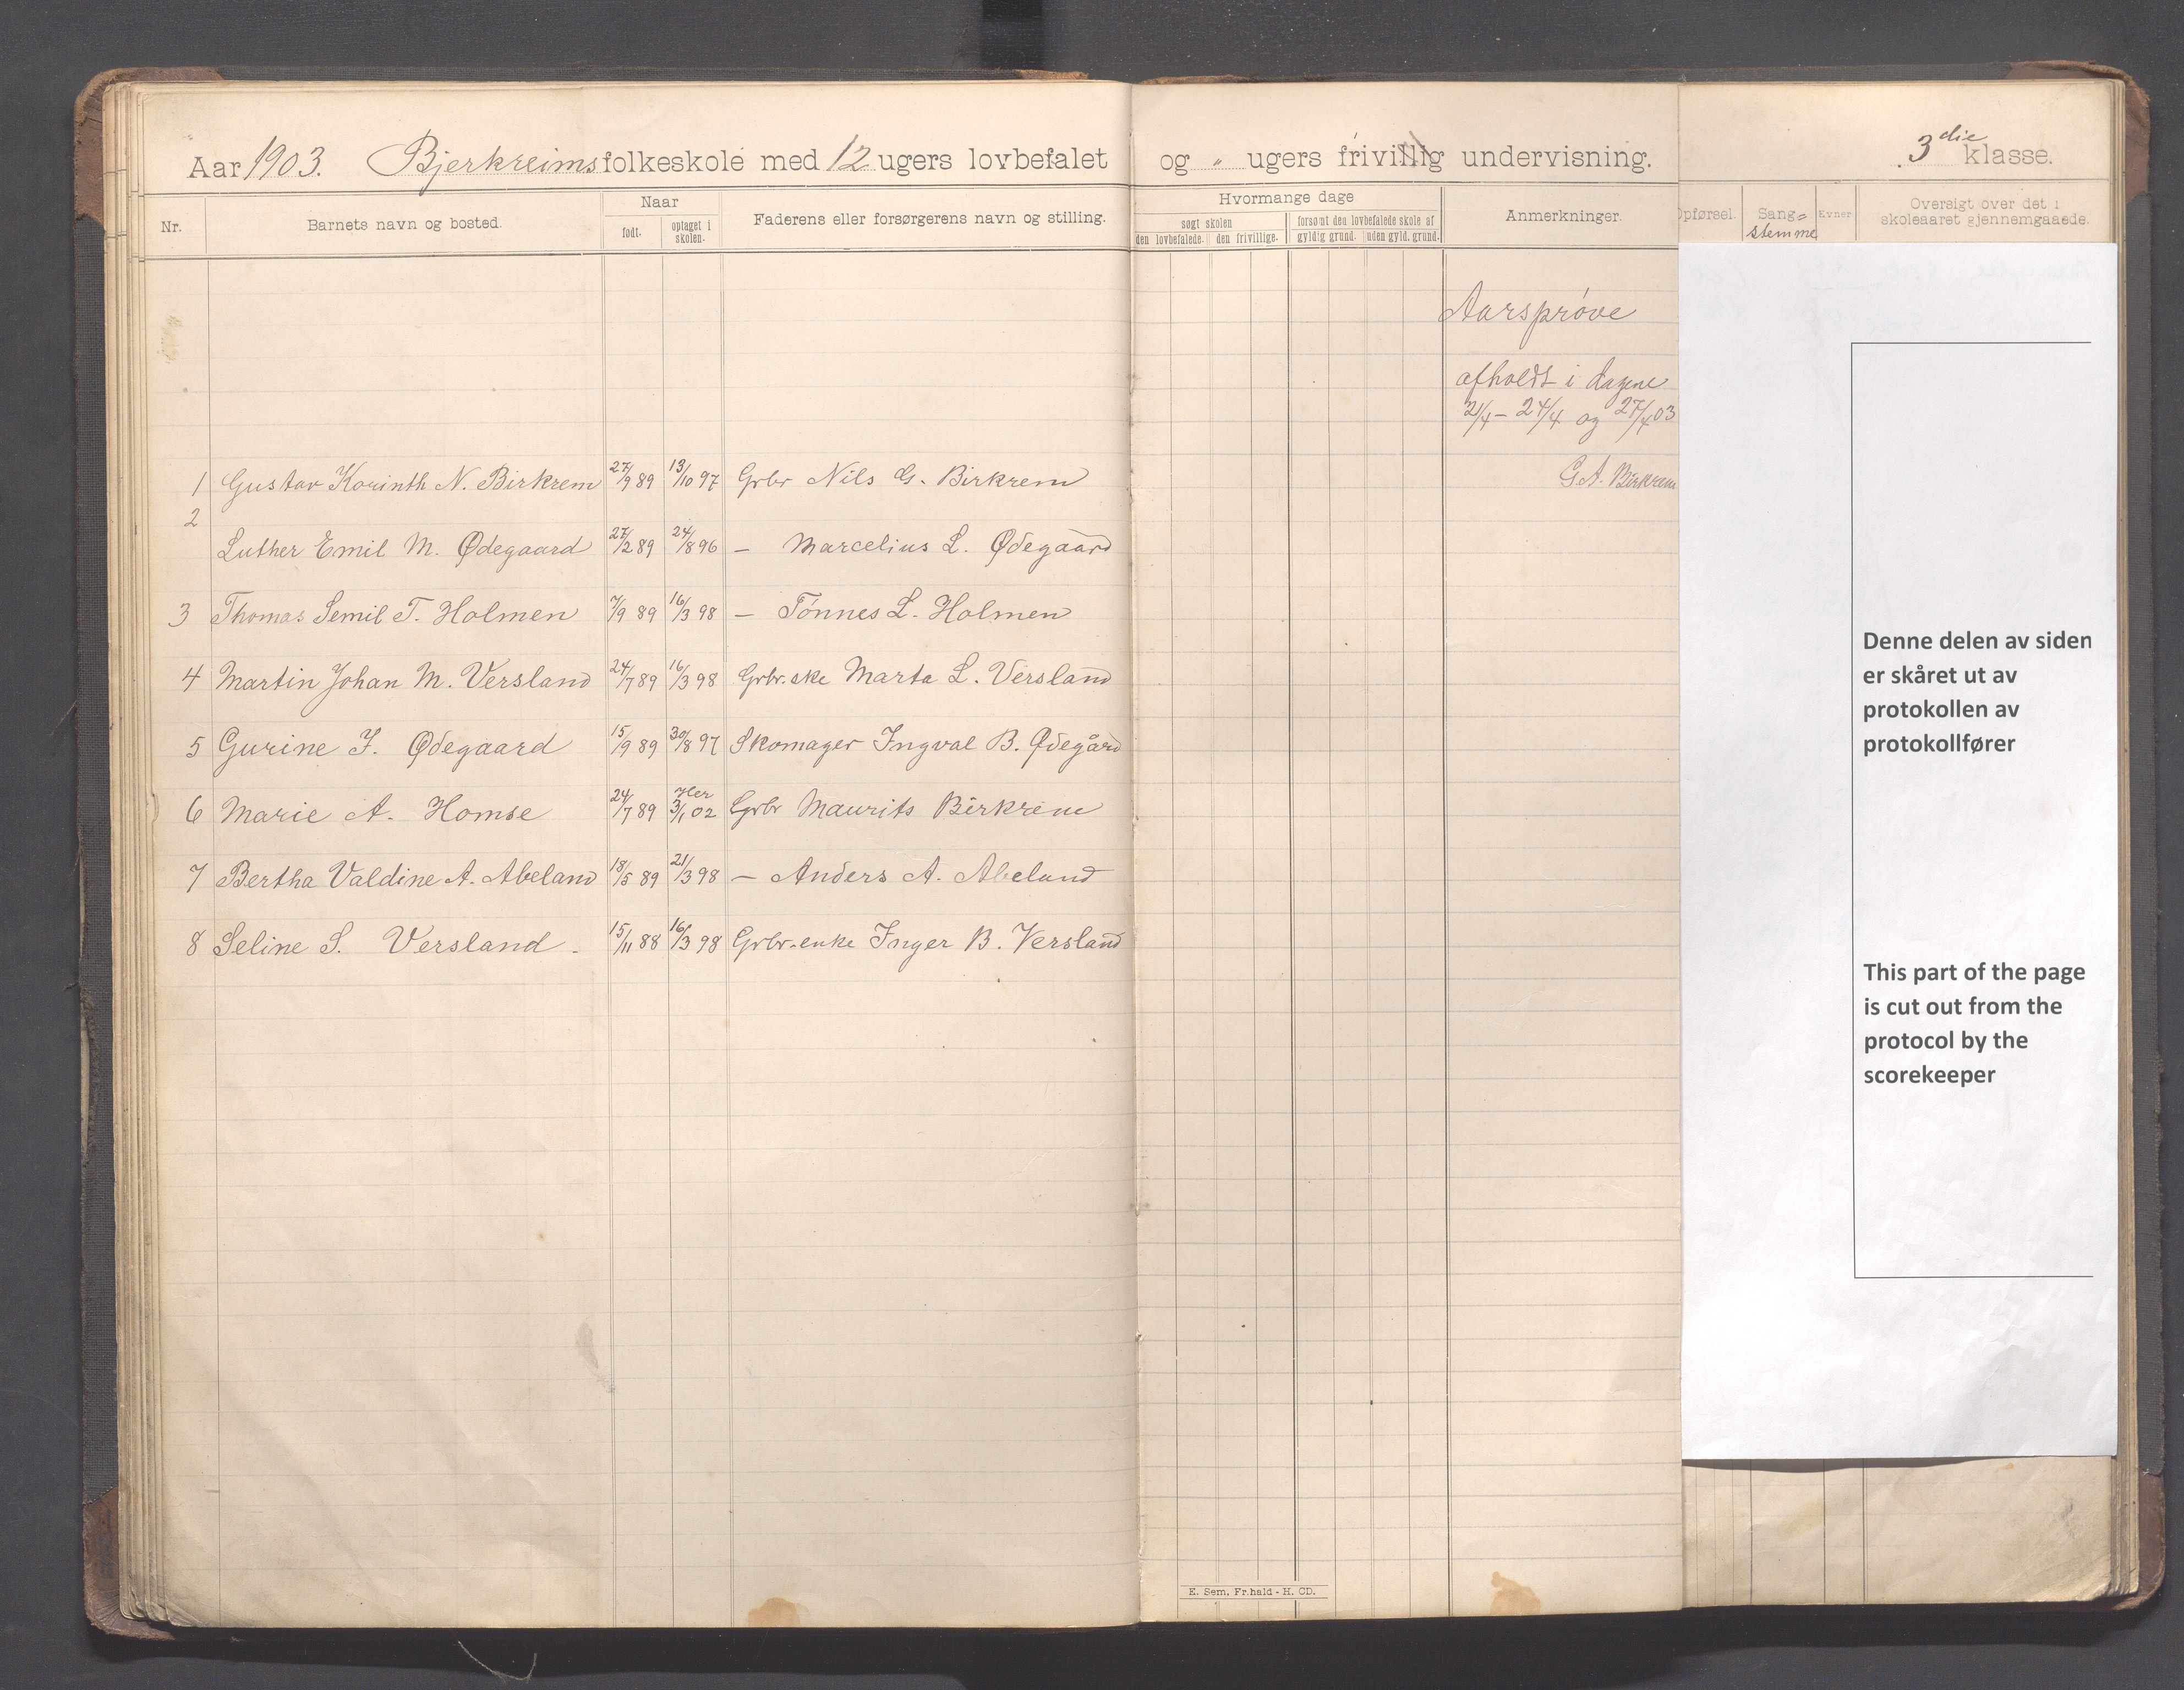 Aar 1903. Bjerkreims folkeskole med 12 ugers lovbefalet og " ugers frivillig undervisning. 3die klasse.
Nr. Barnets navn og bosted. Naar født. optaget i skolen. Faderens eller forsørgerens navn og stilling. Hvormange dage søgt skolen den lovbefalede. den frivillige. forsømt den lovbefalede skole af gyldig grund. uden gyld. grund. Anmerkninger. Opførsel. Sang= stemme Evner Oversigt over det i skoleaaret gjennemgaaede.
Aarsprøve
afholdt i dagene
21/4 - 24/4 og 27/4 03
G.A. Birkrem
1 Gustav Korinth N. Birkrem 27/9 89 13/10 97 Grbr Nils G. Birkrem
2
Luther Emil M. Ødegaard 27/2 89 24/8 96 — Marcelius L. Ødegaard
3 Thomas Semil T. Holmen 7/9 89 16/3 98 — Tønnes L. Holmen
4 Martin Johan M. Versland 24/7 89 16/3 98 Grbr.ske Marta L. Versland
5 Gurine I. Ødegaard 15/9 89 30/8 97 Skomager Ingval B. Ødegård
6 Marie A. Homse 24/7 89 Her 3/1 02 Grbr Maurits Birkrem
7 Bertha Valdine A. Abeland 18/5 89 21/3 98 — Anders A. Abeland
8 Seline S. Versland - 15/11 88 16/3 98 Grbr-enke Inger B. Versland
Denne delen av siden
er skåret ut av
protokollen av
protokollfører
This part of the page
is cut out from the
protocol by the
scorekeeper
E. Sem. Fr.hald - H. CD.